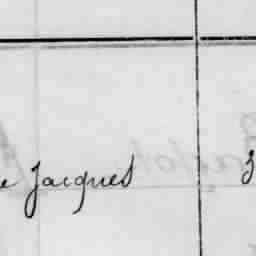 e Jacques